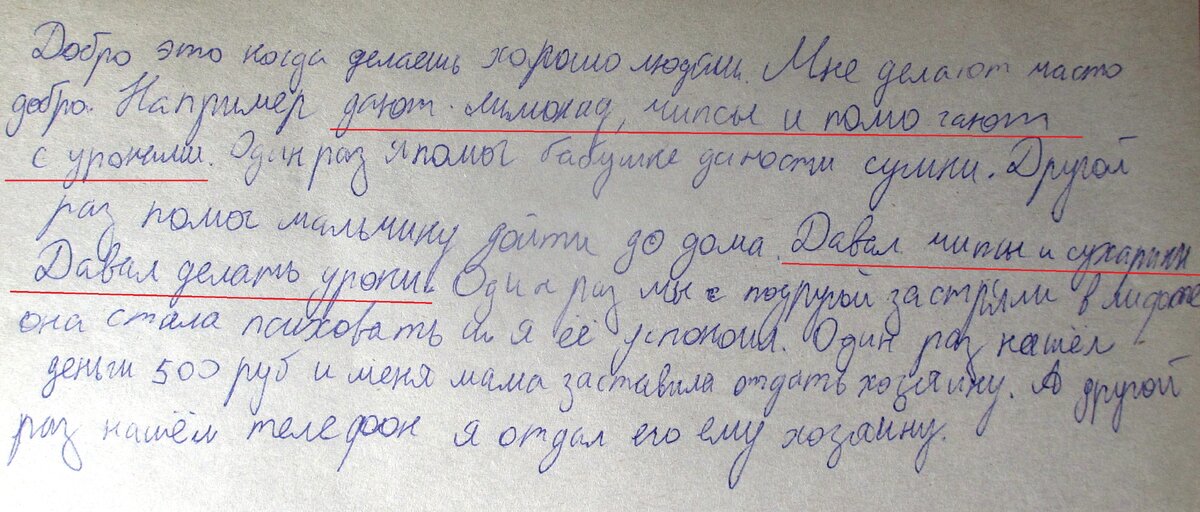 Добро это когда делаешь хорошо людям. Мне делают часто
добро. Например дают лимонад, чипсы и помогают
с уроками. Один раз я помог бабушке даности сумки. Другой
раз помог мальчику дойти до дома. Давал чипсы и сухарики
Давал делать уроки. Один раз мы с подругой застряли в лифте
она стала психовать и я её успокоил. Один раз нашёл
деньги 500 руб и меня мама заставила отдать хозяину. А другой
раз нашём телефон я отдал его ему хозаину.